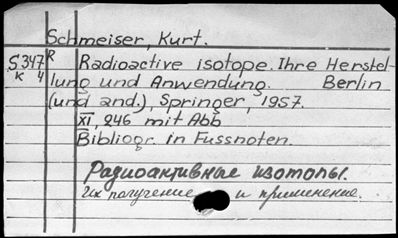 Schmeiser, Kurt.
S 347 R Radioactive isotope. Ihre Herstel-
K 4 lung und Anwendung. Berlin
(und and.), Springer, 1957.
XI, 246 mit Abb
Bibliogr. in Fussnoten.
Радиоактивные изотопы.
Их получение и применение.